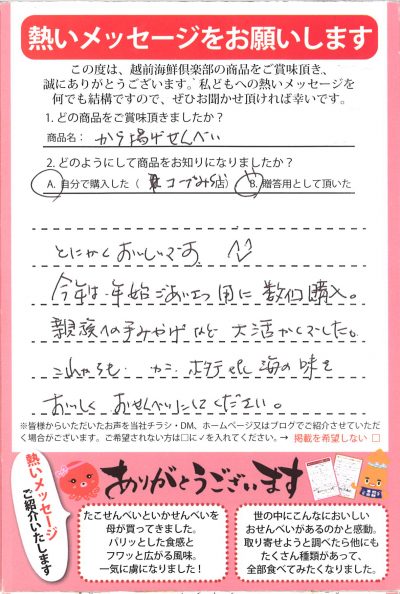 熱いメッセージをお願いします
この度は、越前海鮮倶楽部の商品をご賞味頂き、
誠にありがとうございます。私どもへの熱いメッセージを
何でも結構ですので、ぜひお聞かせ頂ければ幸いです。
1. どの商品をご賞味頂きましたか?
商品名: から揚げせんべい
2. どのようにして商品をお知りになりましたか?
A. 自分で購入した( コープみらい店) B. 贈答用として頂いた
とにかくおいしいです。
今年は年始ごあいさつ用に数個購入。
親族への手みやげなど大活かくでした。
これからも カニ ホタテetc 海の味を
おいしくおせんべいにしてください。
※皆様からいただいたお声を当社チラシ・DM、ホームページ又はブログでご紹介させていただ
く場合がございます。ご希望されない方は□に✓を入れてください。→ 掲載を希望しない □
熱いメッセージ
ご紹介いたします
ありがとうございます
たこせんべいといかせんべいを
母が買ってきました。
パリッとした食感と
フワッと広がる風味。
一気に虜になりました!
世の中にこんなにおいしい
おせんべいがあるのかと感動。
取り寄せようと調べたら他にも
たくさん種類があって、
全部食べてみたくなりました。